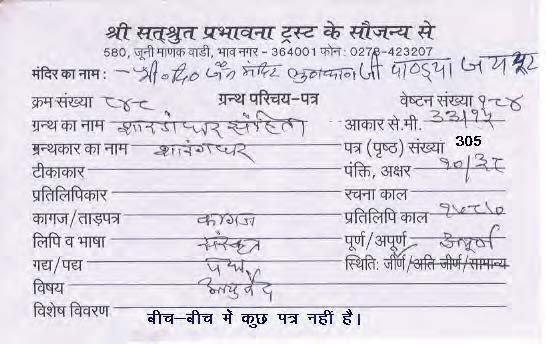 श्री सत्श्रुत प्रभावना ट्रस्ट के सौजन्य से
580, जूनी माणक वाडी, भाव नगर - 364001 फोन : 0278-423207
मंदिर का नाम : श्री दि० जैन मंदिर लुणकरण जी पाण्ड्या जयपुर
क्रम संख्या ८४८ ग्रन्थ परिचय-पत्र वेष्टन संख्या १८४
ग्रन्थ का नाम शारङ्गधर संहिता आकार से.मी. 33/१५
ग्रन्थकार का नाम शारंगधर पत्र (पृष्ठ) संख्या 305
टीकाकार पंक्ति, अक्षर १०/३८
प्रतिलिपिकार रचना काल
कागज/ताड़पत्र कागज प्रतिलिपि काल
लिपि व भाषा संस्कृत पूर्ण/अपूर्ण अपूर्ण
गद्य/पद्य पद्य स्थिति: जीर्ण/अति जीर्ण/सामान्य
विषय आयुर्वेद
विशेष विवरण बीच-बीच में कुछ पत्र नहीं है।